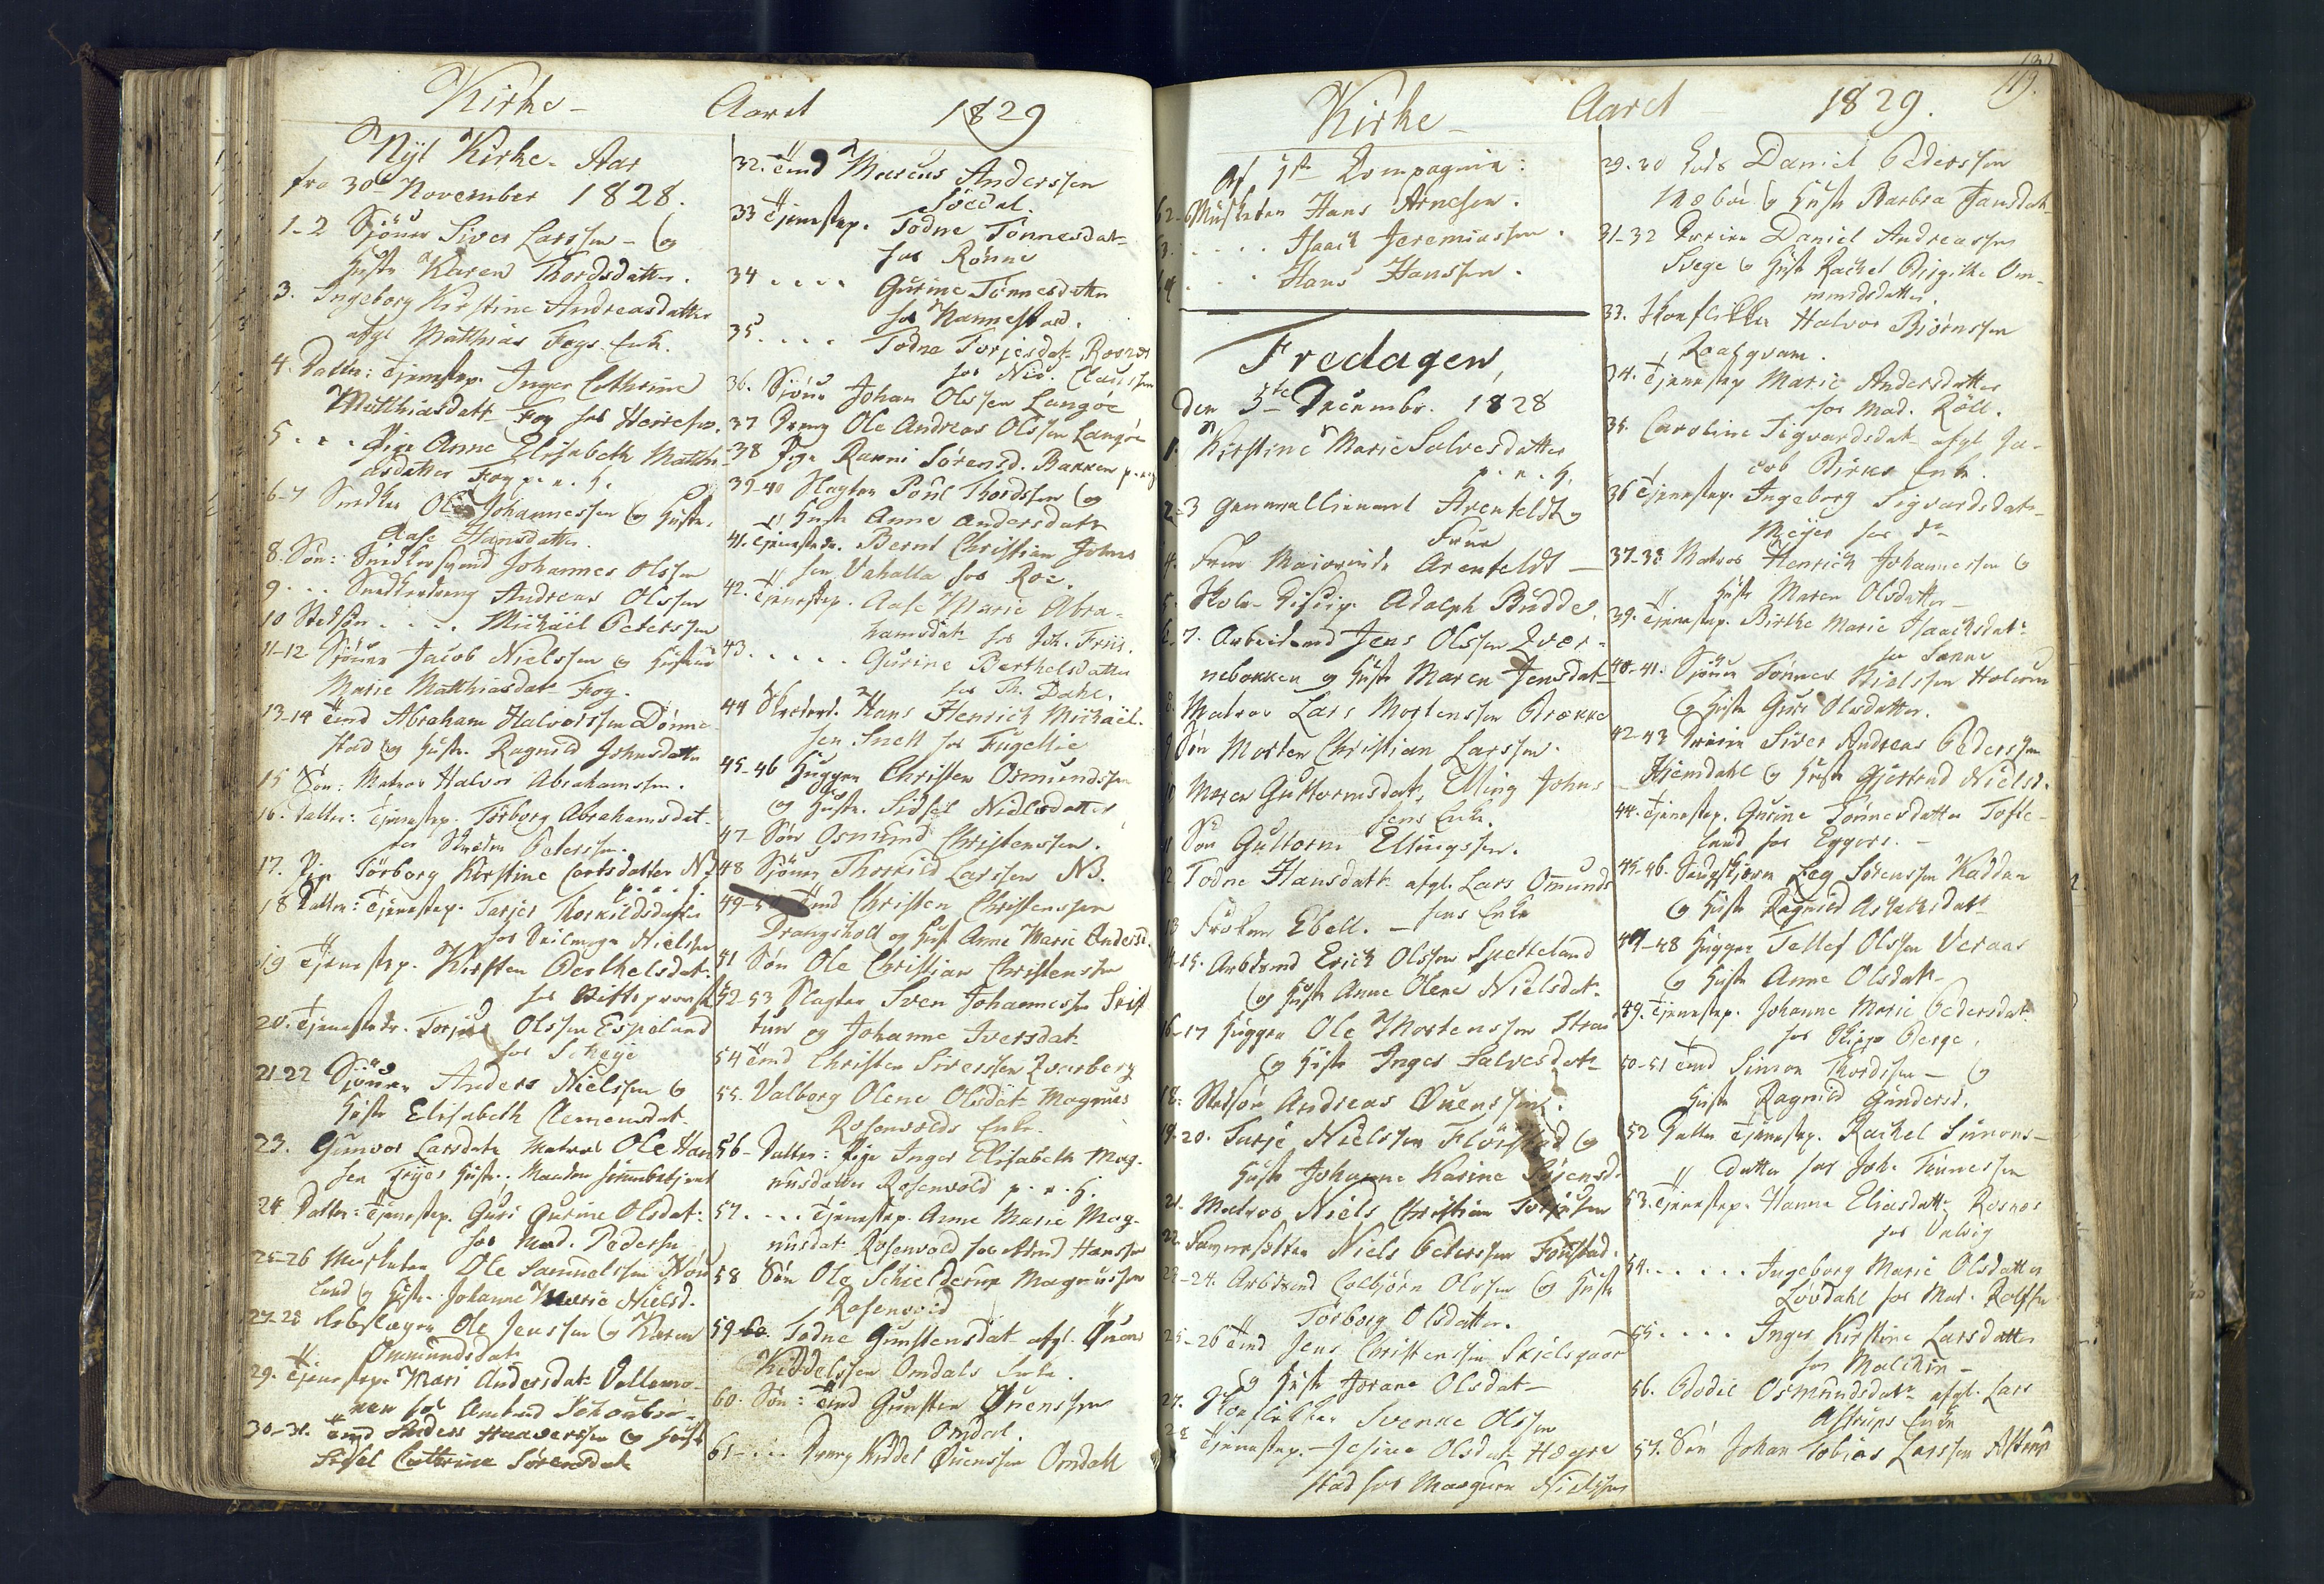 Kirke- Aaret 1829
Nÿt Kirke-Aar
fra 30te November 1828.
1-2 Sjöum Siver Larssen - og
Hustr Karen Thordsdatter.
3. Ingeborg Kirstine Andreasdatter
afgl Matthias Fogs Enk.
4. Datter: Tjenestep. Inger Cathrine
Matthiasdatt Fog hos
5. . . Pige Anne Elisabeth Matthi
asdatter Fog p. e. H.
6-7 Snedker Ole Johannessen og Hustr.
Aase Hansdatter.
8. Sön: Snedkersvend Johannes Olssen
9. . . Snedkerdreng Andreas Olssen
10 Stedsön . . . . Michäel Peterssen
11-12 Sjöum Jacob Nielssen og Hustru
Marie Matthiasdat Fog.
13-14 Tmd Abraham Halvorssen Dönne
stad og Hustr. Ragnild Johnsdatter
15 Sön: Matros Halvor Abrahamssen.
16. Datter: Tjenestep. Törborg Abrahamsdat.
hos Peterssen.
17. Pige Törborg Kirstine Cortsdatter N3
p. e. H.
18 Datter: Tjenestep. Terjer Thorkildsdatter
hos Seilmager Nielssen
19 Tjenestep. Kirsten Berthelsdat:
hos Stiftsprovst
20. Tjenestedr. Torjus Olssen Espeland
hos Scheye
21-22 Sjöumn Anders Nielssen og
Hustr Elisabeth Clemensdat.
23. Gunvor Larsdatt Matros Ole Han
sen Frijes Hustr. Manden
24 Datter: Tjenestep. Guri Gurine Olsdat:
hos Mad. Pedersen
25-26 Musketer Ole Samuelssen
land og Hustr. Johanne Marie Nielsd.
27-28 Rebslager Ole Jenssen og Karen
Ommundsdat
29. Tjenestep. Mari Andersdat
hos Amtmd Schouboe
30-31. Tmd Anders Haavorssen og Hustr
Sidsel Cathrine Sörensdat
32. Tmd Marcus Anderssen
Söedal.
33 Tjenestep. Todne Tönnesdat
hos Rönne
34 . . . . Gurine Tönnesdatter
hos Nannestad.
35 . . . . Todne Torjesdat Rosnes
hos Claussen
36. Sjöum Johan Olssen Langöe
37 Dreng Ole Andreas Olssen Langöe
38 Pige Ranni Sörensd. Bakken p. e. H
39-40 Slagter Poul Thordssen og
Hustr Anne Andersdatt
41. Tjenestedr. Bernt Christian Johns
sen Vahalla hos Roe.
42. Tjenestep. Aase Marie Abra-
hamsdat hos Joh. Friis.
43. . . . . Gurine Berthelsdatter
hos Th. Dahl.
44 Skrederd. Hans Henrich Michäel-
sen Snell hos Fugellie
45-46 Hugger Christen Osmundssen
og Hustr. Sidsel Nielsdatter
47- Sön Osmund Christenssen.
48 Sjöum Thorkild Larssen N3.
49-50 Tmd Christen Christenssen
Drangsholt og Hust Anne Marie Andersd.
51 Sön Ole Christian Christenssen
52-53 Slagter Sven Johannessen
tun og Johanne Iversdat
54 Tmd Christen Siverssen Qvarberg
55. Valborg Olene Olsdat Magnus
Rosenvolds Enke.
56- Datter: Pige Inger Elisabeth Mag-
nusdatter Rosenvold p. e. H.
57. . . . Tjenestep. Anne Marie Mag-
nusdat Rosenvold hos Hanssen
58 Sön Ole Schielderup Magnussen
Rosenvold
59-60. Todne Gunstensdat afgl. Ouens
Kiddelssen Omdals Enke.
60. Sön: Tmd Gunsten Ouenssen
Omdal.
61- . . . Dreng Kiddel Ouenssen Omdall
Kirke- Aaret 1829. 119.
Af 1ste Kompagnie:
62. Musketer Hans Arnesen.
63. . . . Isaack Jeremiassen.
64 . . . Hans Hanssen.
Fredagen,
den 5te Decembr. 1828
1. Kirstine Marie Salvesdatter
p. e. H.
2-3 Generallieutnant Arenfeldt og
Frue
4. Frue Majorinde Arenfeldt -
5. Skole-Discip. Adolph Budde,
6-7. Arbeidsmd Jens Olssen Qver-
nebakken og Hustr Maren Jensdat
8. Matros Lars Mortenssen Brække
9 Sön Morten Christian Larssen.
10 Maren Guttormsdat, Elling Johns
sens Enke.
11 Sön Guttorm Ellingssen.
12 Todne Hansdatt afgl. Lars Omunds
sens Enke
13 Fröken Ebell.
14-15. Arbdsmd Erick Olssen Spetteland
og Hustr Anne Olene Nielsdat.
16-17 Hugger Ole Mortenssen Strai
og Hustr Inger Salvesdat
18. Stedsön Andreas Ouenssen.
19-20. Tarje Nielssen Flöistad og
Hustr Johanne Karine Sörensd.
21. Matros Niels Christian Torjussen
22. Niels Peterssen Tönstad.
23-24. Arbdsmd Colbjörn Olssen og Hustr
Törborg Olsdatter.
25-26 Tmd Jens Christenssen Skielsgaar
og Hustr Jorane Olsdat-
27. Skoeflikker Svenne Olssen
28 Tjenestep. Jesine Olsdat Høgre
stad hos Marguer Nielssen
29-30 Lods Daniel Pederssen
Ræboe og Hustr Barbra Jansdat
31-32 Daniel Andreassen
Svege og Hustr Rachel Birgitte Om-
mundsdatter.
33. Skoeflikker Halvor Biörnssen
Roaldqvam.
34. Tjenestep Marie Andersdatter
hos Mad. Röll.
35. Caroline Sigvardsdat afgl Ja-
cob Birkes Enk.
36 Tjenestep. Ingeborg Sigvardsdatt
Meÿer hos do
37-38 Matros Henrich Johannessen og
Hustr Maren Olsdatter
39. Tjenestep. Birthe Marie Isaachsdat:
hos Sanne
40-41. Sjöum Tönnes Nielssen Holum
og Hustr Guri Olsdatter.
42-43 Siver Andreas Pederssen
Hiemdahl og Hustr Gjertrud Nielsd.
44. Tjenestep. Gurine Tönnesdatter Tofte-
land hos Eggers. -
45-46. Leg Sörenssen Kaddan
og Hustr Ragnild Aslaksdatt
47-48 Hugger Tellef Olssen Veraas
og Hustr Anne Olsdatt
49. Tjenestep. Johanne Marie Pedersdat
hos Skipp Berge.
50-51 Tmd Simon Thordssen - og
Hustr Ragnild Gundersd.
52 Datter Tjenestep. Rachel Simons-
datter hos Joh. Tönnessen
53. Tjenestep. Hanne Eliasdatt Rosnes
hos
54. . . . . Ingeborg Marie Olsdatter
Lövdahl hos Mad. Rolfsen
55. . . . Inger Kirstine Larsdatter
hos Malthin -
56. Bodil Osmundsdatr afgl. Lars
Astrups Enke
57. Sön Johan Tobias Larssen Astrup